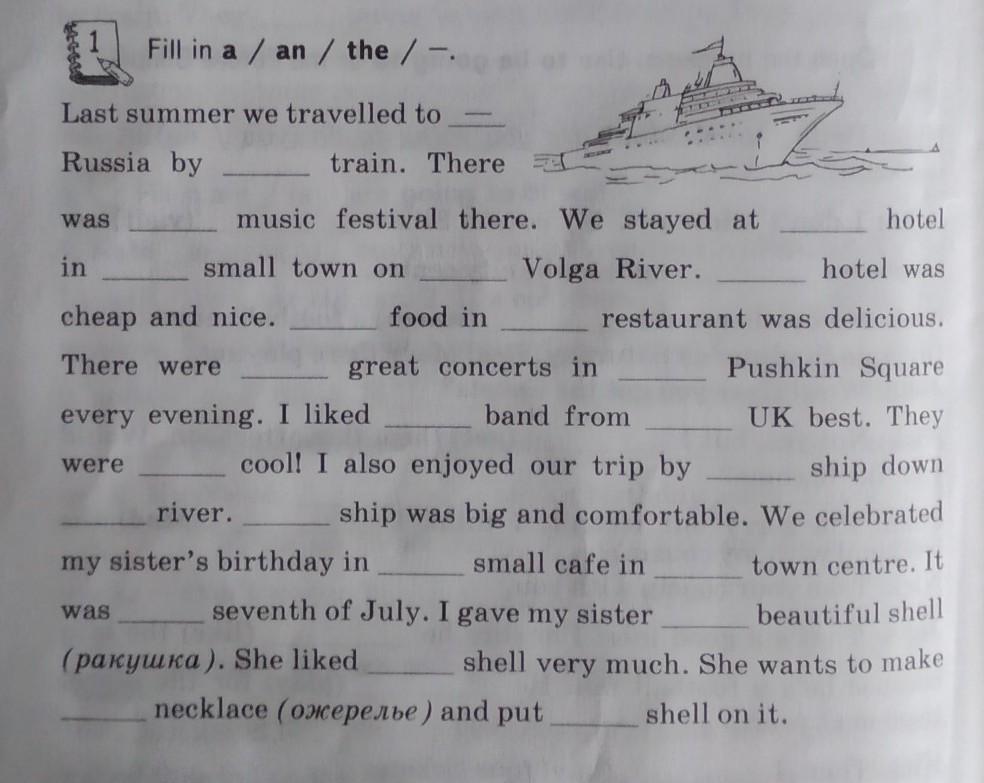 1 Fill in a / an / the / —.
Last summer we travelled to —
Russia by ______ train. There
was ______ music festival there. We stayed at ______ hotel
in ______ small town on ______ Volga River. ______ hotel was
cheap and nice. ______ food in ______ restaurant was delicious.
There were ______ great concerts in ______ Pushkin Square
every evening. I liked ______ band from ______ UK best. They
were ______ cool! I also enjoyed our trip by ______ ship down
______ river. ______ ship was big and comfortable. We celebrated
my sister's birthday in ______ small cafe in ______ town centre. It
was ______ seventh of July. I gave my sister ______ beautiful shell
(ракушка). She liked ______ shell very much. She wants to make
______ necklace (ожерелье) and put ______ shell on it.